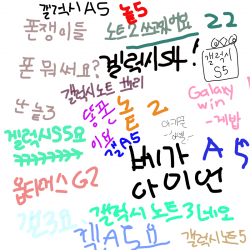 갤럭시 A5
놑5
폰쟁이들
노트2 쓰레여요
22
폰 뭐써요?
갤럭시S4!
갤럭시
S5
갤럭시노트
난 놑3
똥폰
놑 2
Galaxy
win
-게밥
갤럭시S5요
갤A5
베가
아이언
A5
옵티머스G2
갤3요
갤럭시노트3네오
갤A5요
갤럭시노트5